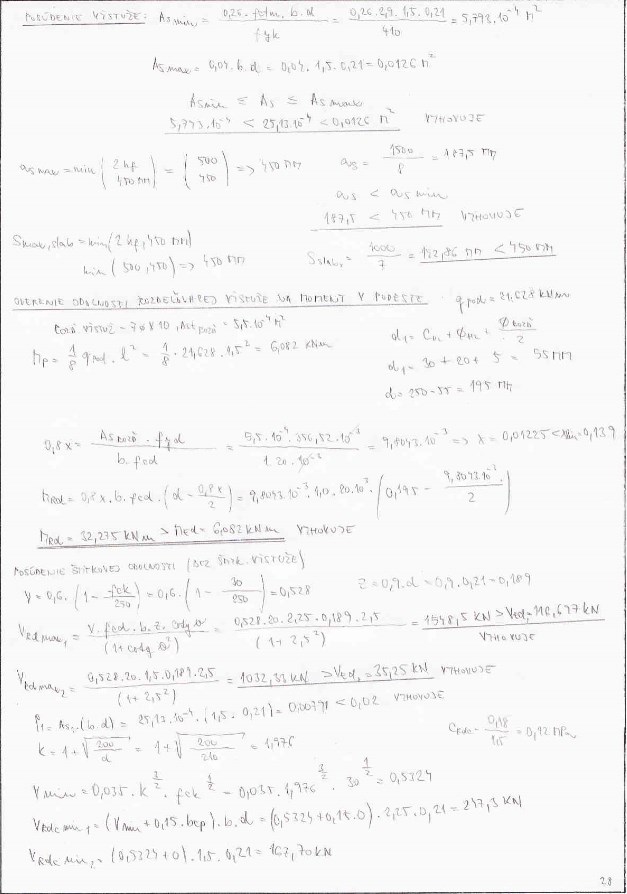 POSÚDENIE VÝSTUŽE: As min = 0,26 . fctm . b . d / fyk = 0,26 . 2,9 . 1,5 . 0,21 / 410 = 5,793.10⁻⁴ m²
As max = 0,04 . b . d = 0,04 . 1,5 . 0,21 = 0,0126 m²
As min ≤ As ≤ As max
5,793.10⁻⁴ < 25,13.10⁻⁴ < 0,0126 m² VYHOVUJE
as max = min (2 hf 450 mm) = (500 450) => 450 mm as = 1500 / 8 = 187,5 mm
as < as min
187,5 < 450 mm VYHOVUJE
Smax, slab = min (2 hf, 450 mm)
min (500, 450) => 450 mm Sslab, = 1000 / 7 = 142,86 mm < 450 mm
OVERENIE ODOLNOSTI ROZDEĽOVACEJ VÝSTUŽE NA MOMENT V PODESTE qpod = 21,628 kN/m
ROZD VÝSTUŽ - 7 ø 10, Ast rozd = 5,5.10⁻⁴ m²
Mp = 1/8 qpod . l² = 1/8 . 21,628 . 1,5² = 6,082 kNm
d1 = cnom + ø + ø rozd / 2
d1 = 30 + 20 + 5 = 55 mm
d = 250 - 55 = 195 mm
0,8x = As rozd . fyd / b . fcd = 5,5.10⁻⁴ . 356,52.10⁻³ / 1 . 20.10⁻³ = 9,8043.10⁻³ => x = 0,01225 < xlim = 0,139
MRd = 0,8x . b . fcd . (d - 0,8x / 2) = 9,8043.10⁻³ . 1,0 . 20.10³ . (0,195 - 9,8043.10⁻³ / 2)
MRd = 32,275 kNm > MEd = 6,082 kNm VYHOVUJE
POSÚDENIE ŠMYKOVEJ ODOLNOSTI (BEZ ŠMYK. VÝSTUŽE)
ν = 0,6 . (1 - fck / 250) = 0,6 . (1 - 30 / 250) = 0,528 z = 0,9 . d = 0,9 . 0,21 = 0,189
VRd max1 = ν . fcd . b . z . cotg θ / (1 + cotg θ²) = 0,528 . 20 . 2,25 . 0,189 . 2,5 / (1 + 2,5²) = 1548,5 kN > VEd = 118,677 kN
VYHOVUJE
VRd max2 = 0,528 . 20 . 1,5 . 0,189 . 2,5 / (1 + 2,5²) = 1032,33 kN > VEd, = 35,25 kN VYHOVUJE
ρ1 = As, / (b . d) = 25,13.10⁻⁴ / (1,5 . 0,21) = 0,00798 < 0,02 VYHOVUJE
k = 1 + √(200 / d) = 1 + √(200 / 210) = 1,976 CRdc = 0,18 / 1,5 = 0,12 MPa
V min = 0,035 . k^3/2 . fck^1/2 = 0,035 . 1,976^3/2 . 30^1/2 = 0,5324
VRdc min1 = (Vmin + 0,15 . σcp) . b . d = (0,5324 + 0,15 . 0) . 2,25 . 0,21 = 247,3 kN
VRdc min2 = (0,5324 + 0) . 1,5 . 0,21 = 167,70 kN
28